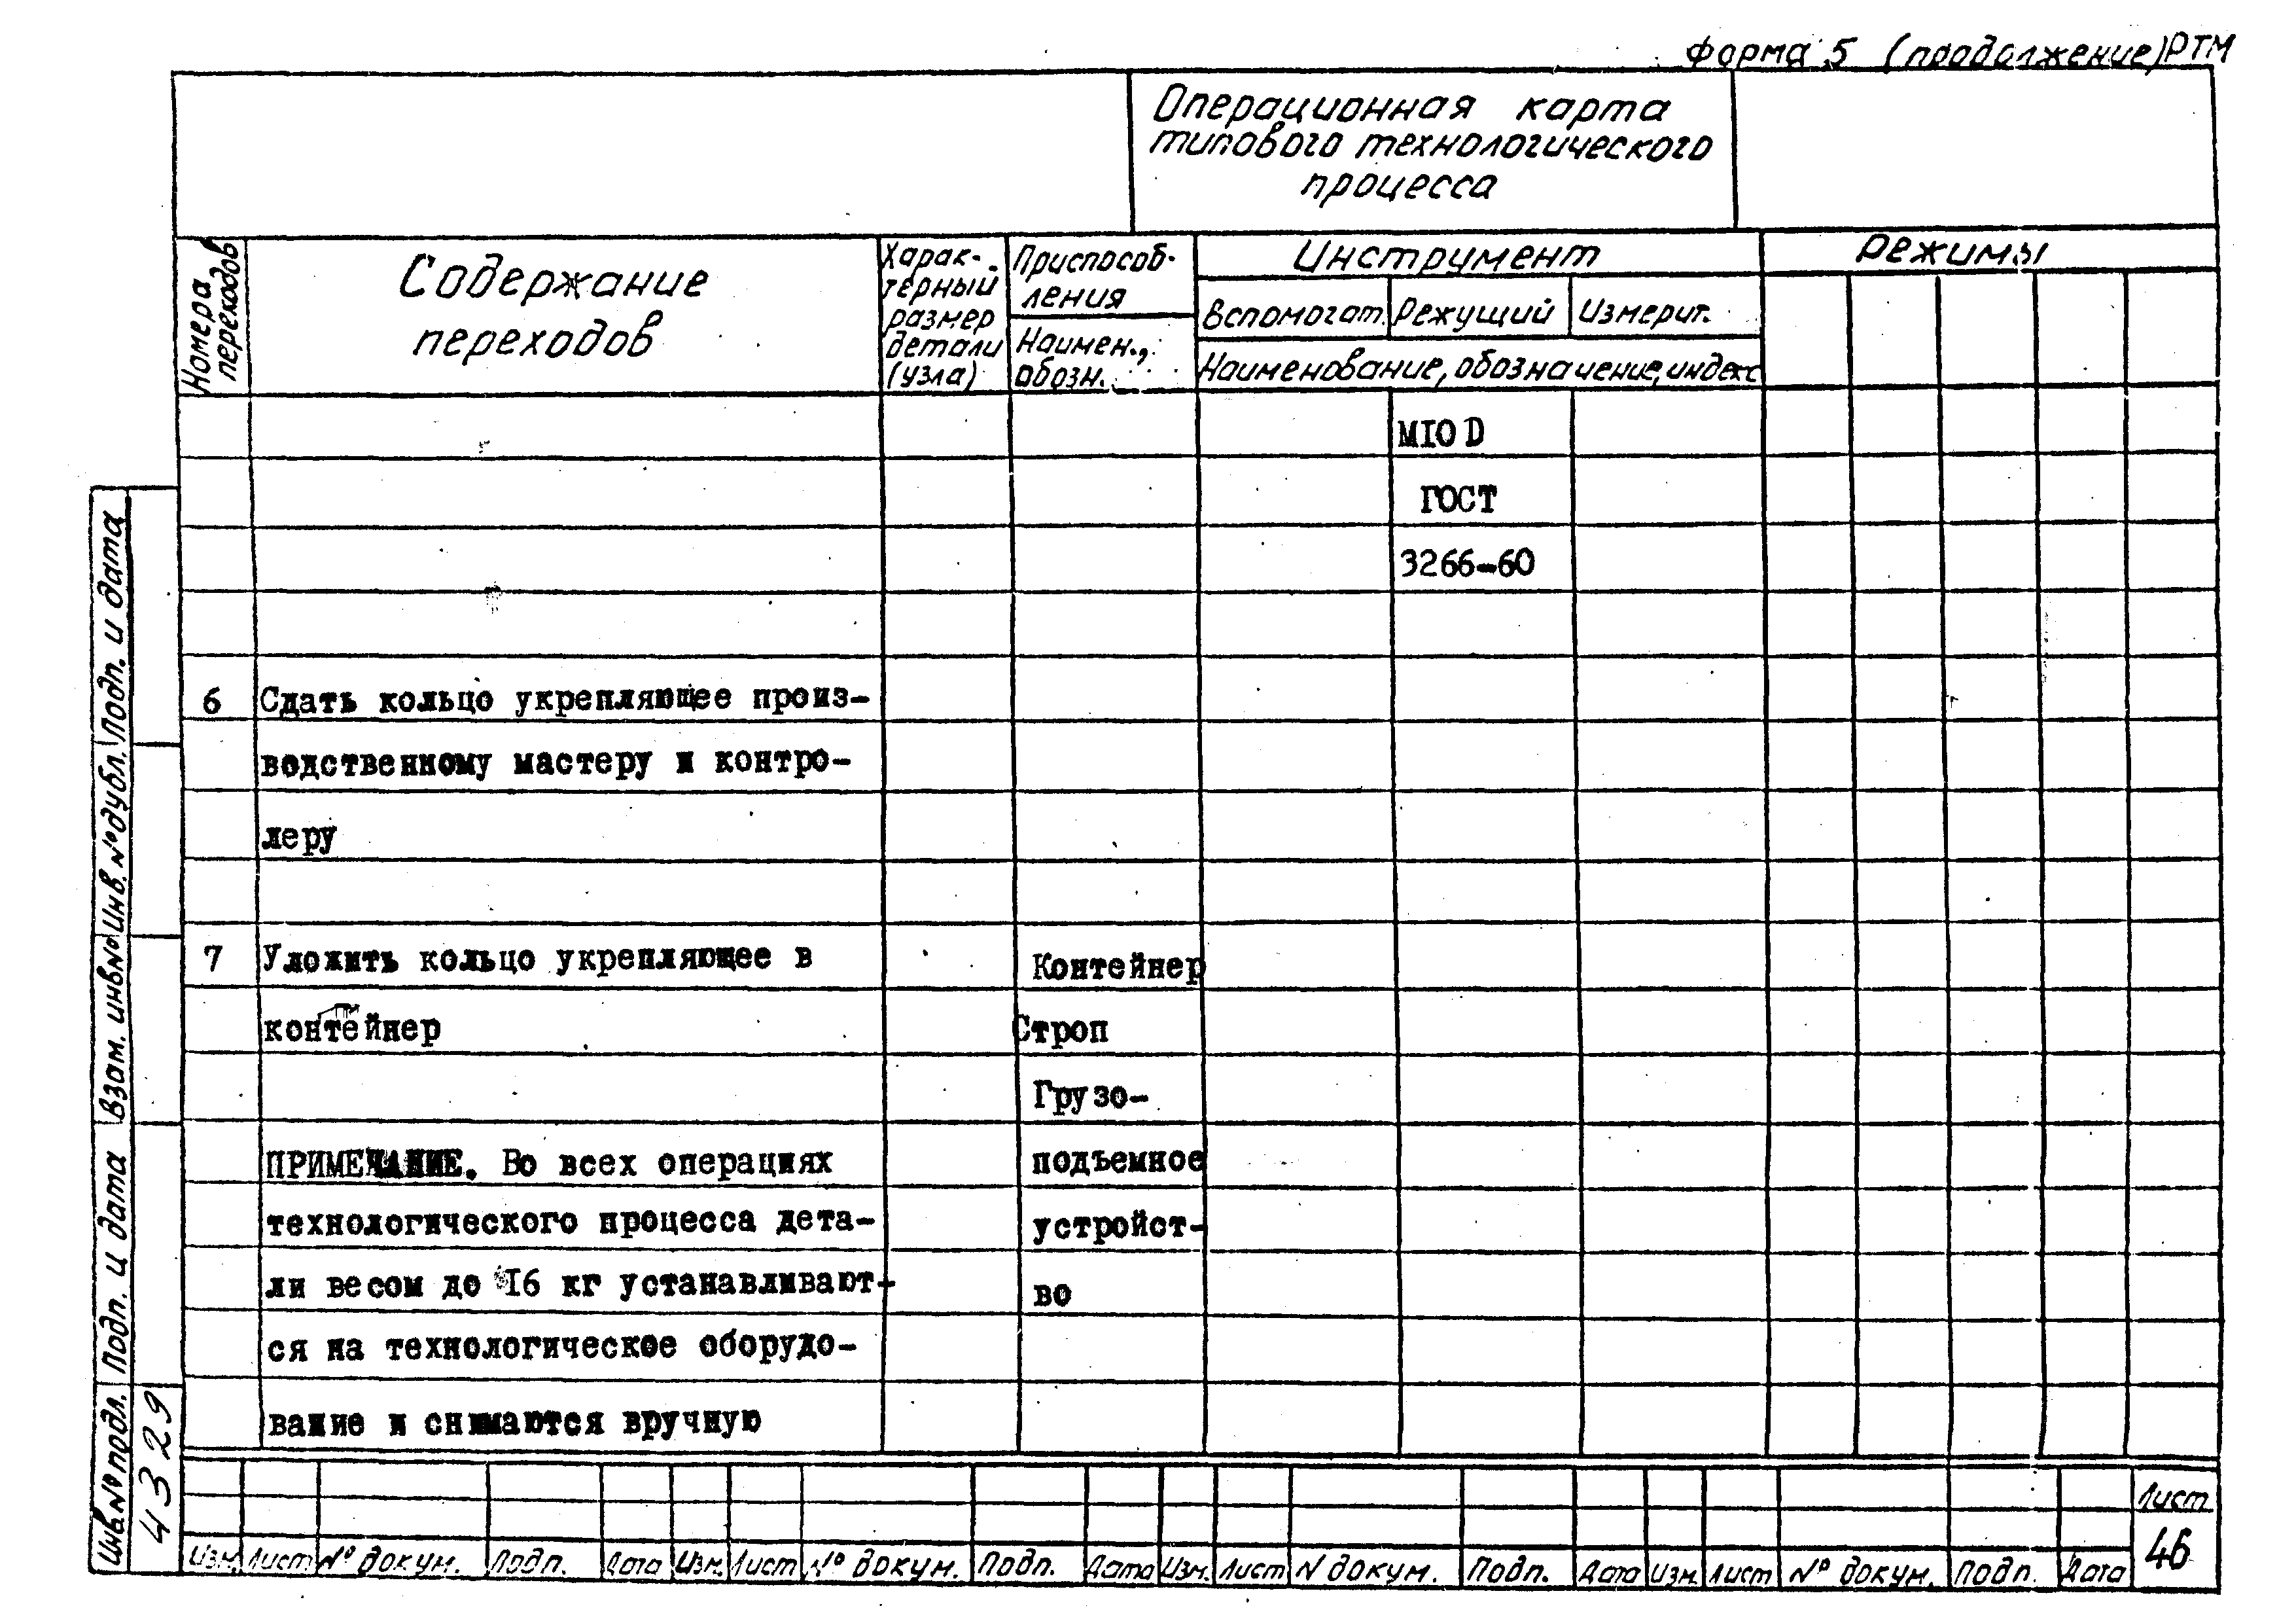 Форма 5 (продолжение) РТМ
Операционная карта
типового технологического
процесса
Номера
переходов
Содержание
переходов
Харак-
терный
размер
детали
(узла)
Приспособ-
ления
Наимен.,
обозн.
Инструмент
Вспомогат. Режущий Измерит.
Наименование, обозначение, индекс
Режимы
МIОD
ГОСТ
3266-60
6 Сдать кольцо укрепляющее произ-
водственному мастеру и контро-
леру
7 Уложить кольцо укрепляющее в Контейнер
контейнер Строп
Грузо-
ПРИМЕЧАНИЕ. Во всех операциях подъемное
технологического процесса дета- устройст-
ли весом до I6 кг устанавливают- во
ся на технологическое оборудо-
вание и снимаются вручную
Лист
46
Изм. Лист № докум. Подп. Дата Изм. Лист № докум. Подп. Дата Изм. Лист N докум. Подп. Дата Изм. Лист № докум. Подп. Дата
Инв.№ подл. Подп. и дата Взам. инв№ Инв.№ дубл. Подп. и дата
4329